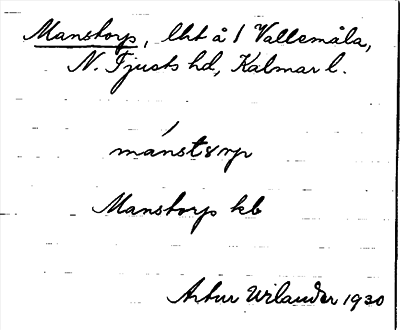 Manstorp, lht å 1 Vallemåla,
N. Tjusts hd, Kalmar l.
mánstȣrp
Manstorp kb
Artur Wilander 1930